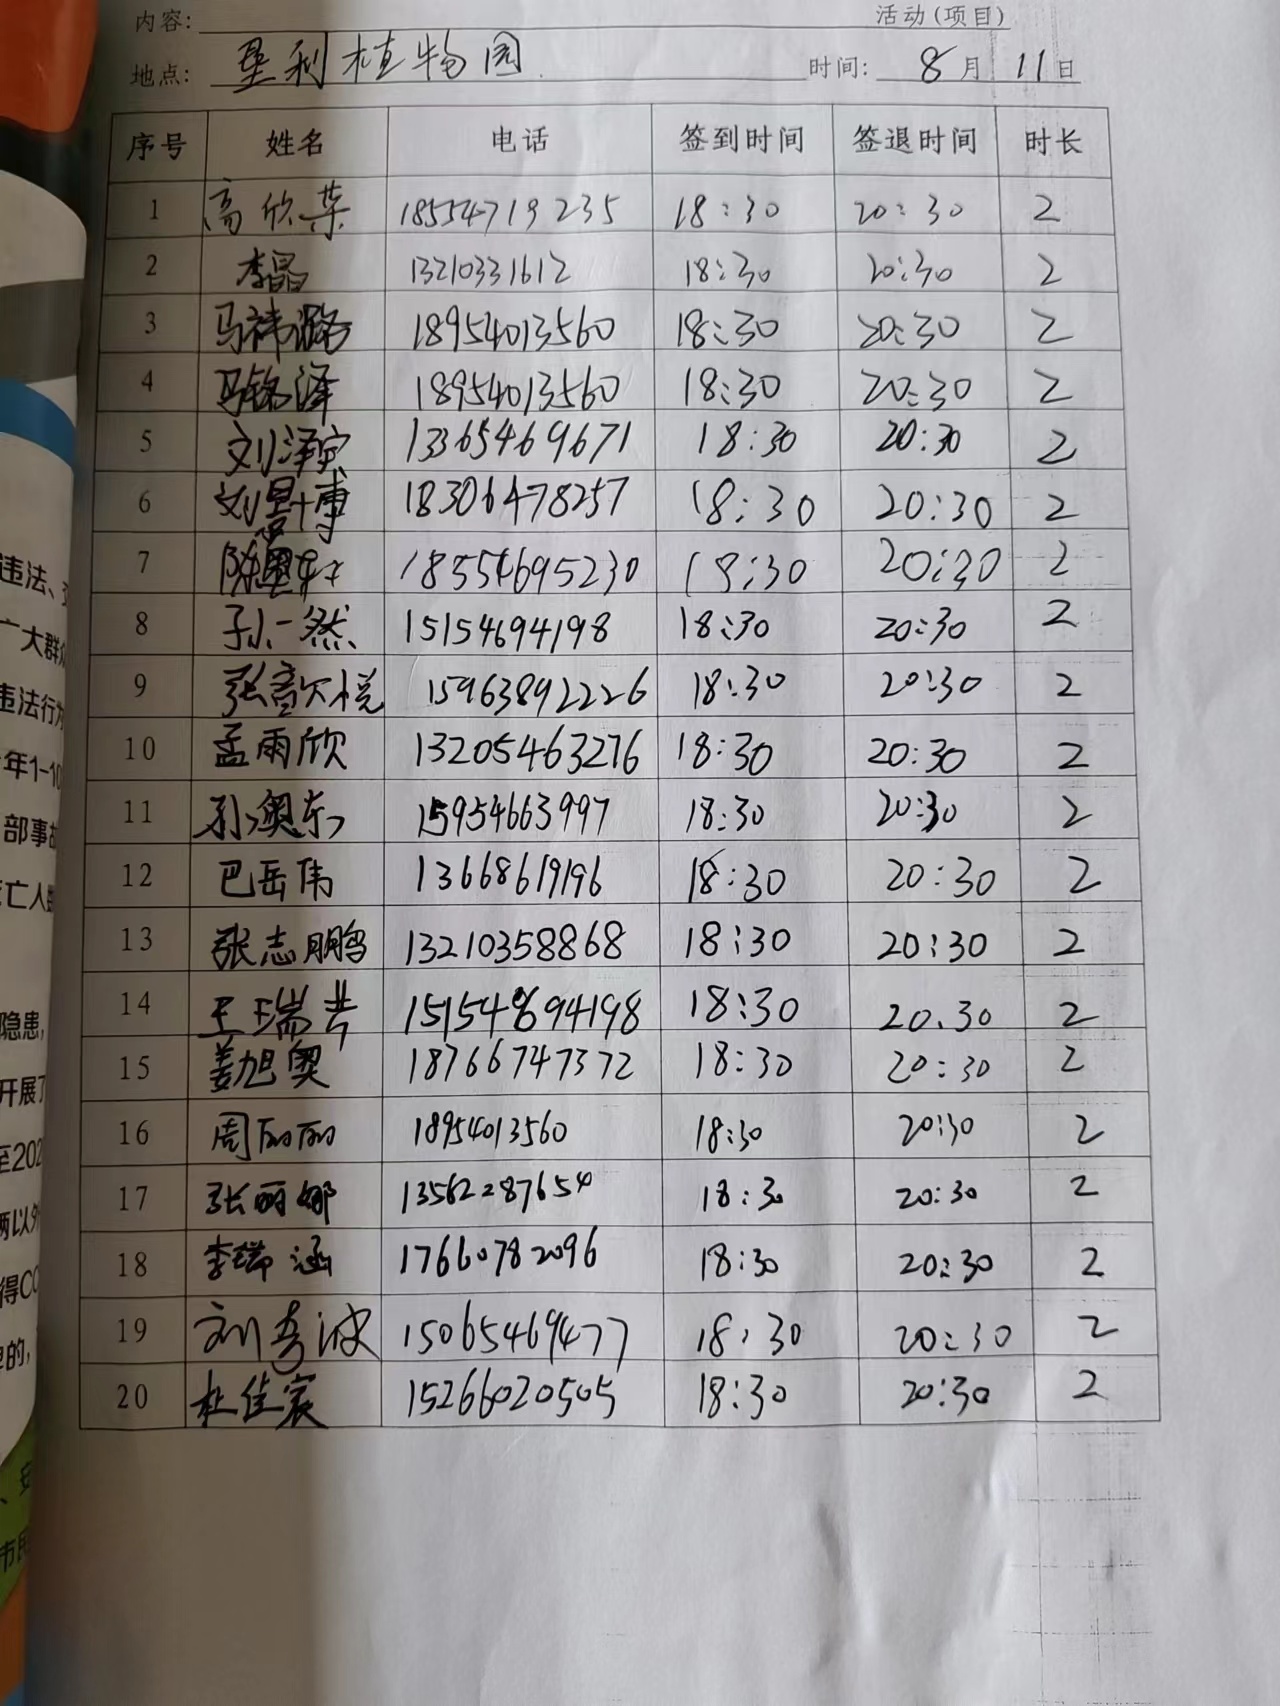 内容: 活动(项目)
地点: 垦利植物园 时间: 8月11日
序号 姓名 电话 签到时间 签退时间 时长
1 高欣荣 18554719235 18:30 20:30 2
2 李晶 13210331612 18:30 20:30 2
3 马祎潞 18954013560 18:30 20:30 2
4 马铭泽 18954013560 18:30 20:30 2
5 刘泽宾 13365469671 18:30 20:30 2
6 刘昱博 18306478257 18:30 20:30 2
7 18554695230 18:30 20:30 2
8 孙一然 15154694198 18:30 20:30 2
9 张歆悦 15963892226 18:30 20:30 2
10 孟雨欣 13205463276 18:30 20:30 2
11 孙奥东 15954663997 18:30 20:30 2
12 巴岳伟 13668619196 18:30 20:30 2
13 张志鹏 13210358868 18:30 20:30 2
14 王瑞芸 15154694198 18:30 20.30 2
15 姜旭奥 18766747372 18:30 20:30 2
16 周丽丽 18954013560 18:30 20:30 2
17 张丽娜 13562287654 18:30 20:30 2
18 李瑞涵 17660782096 18:30 20:30 2
19 刘春波 15065469477 18:30 20:30 2
20 杜佳宸 15266020505 18:30 20:30 2
违法、
广大群
违法行为
年1-10
部事故
亡人
隐患,
开展了
至202
两以外
得CC
的,
、安
市民